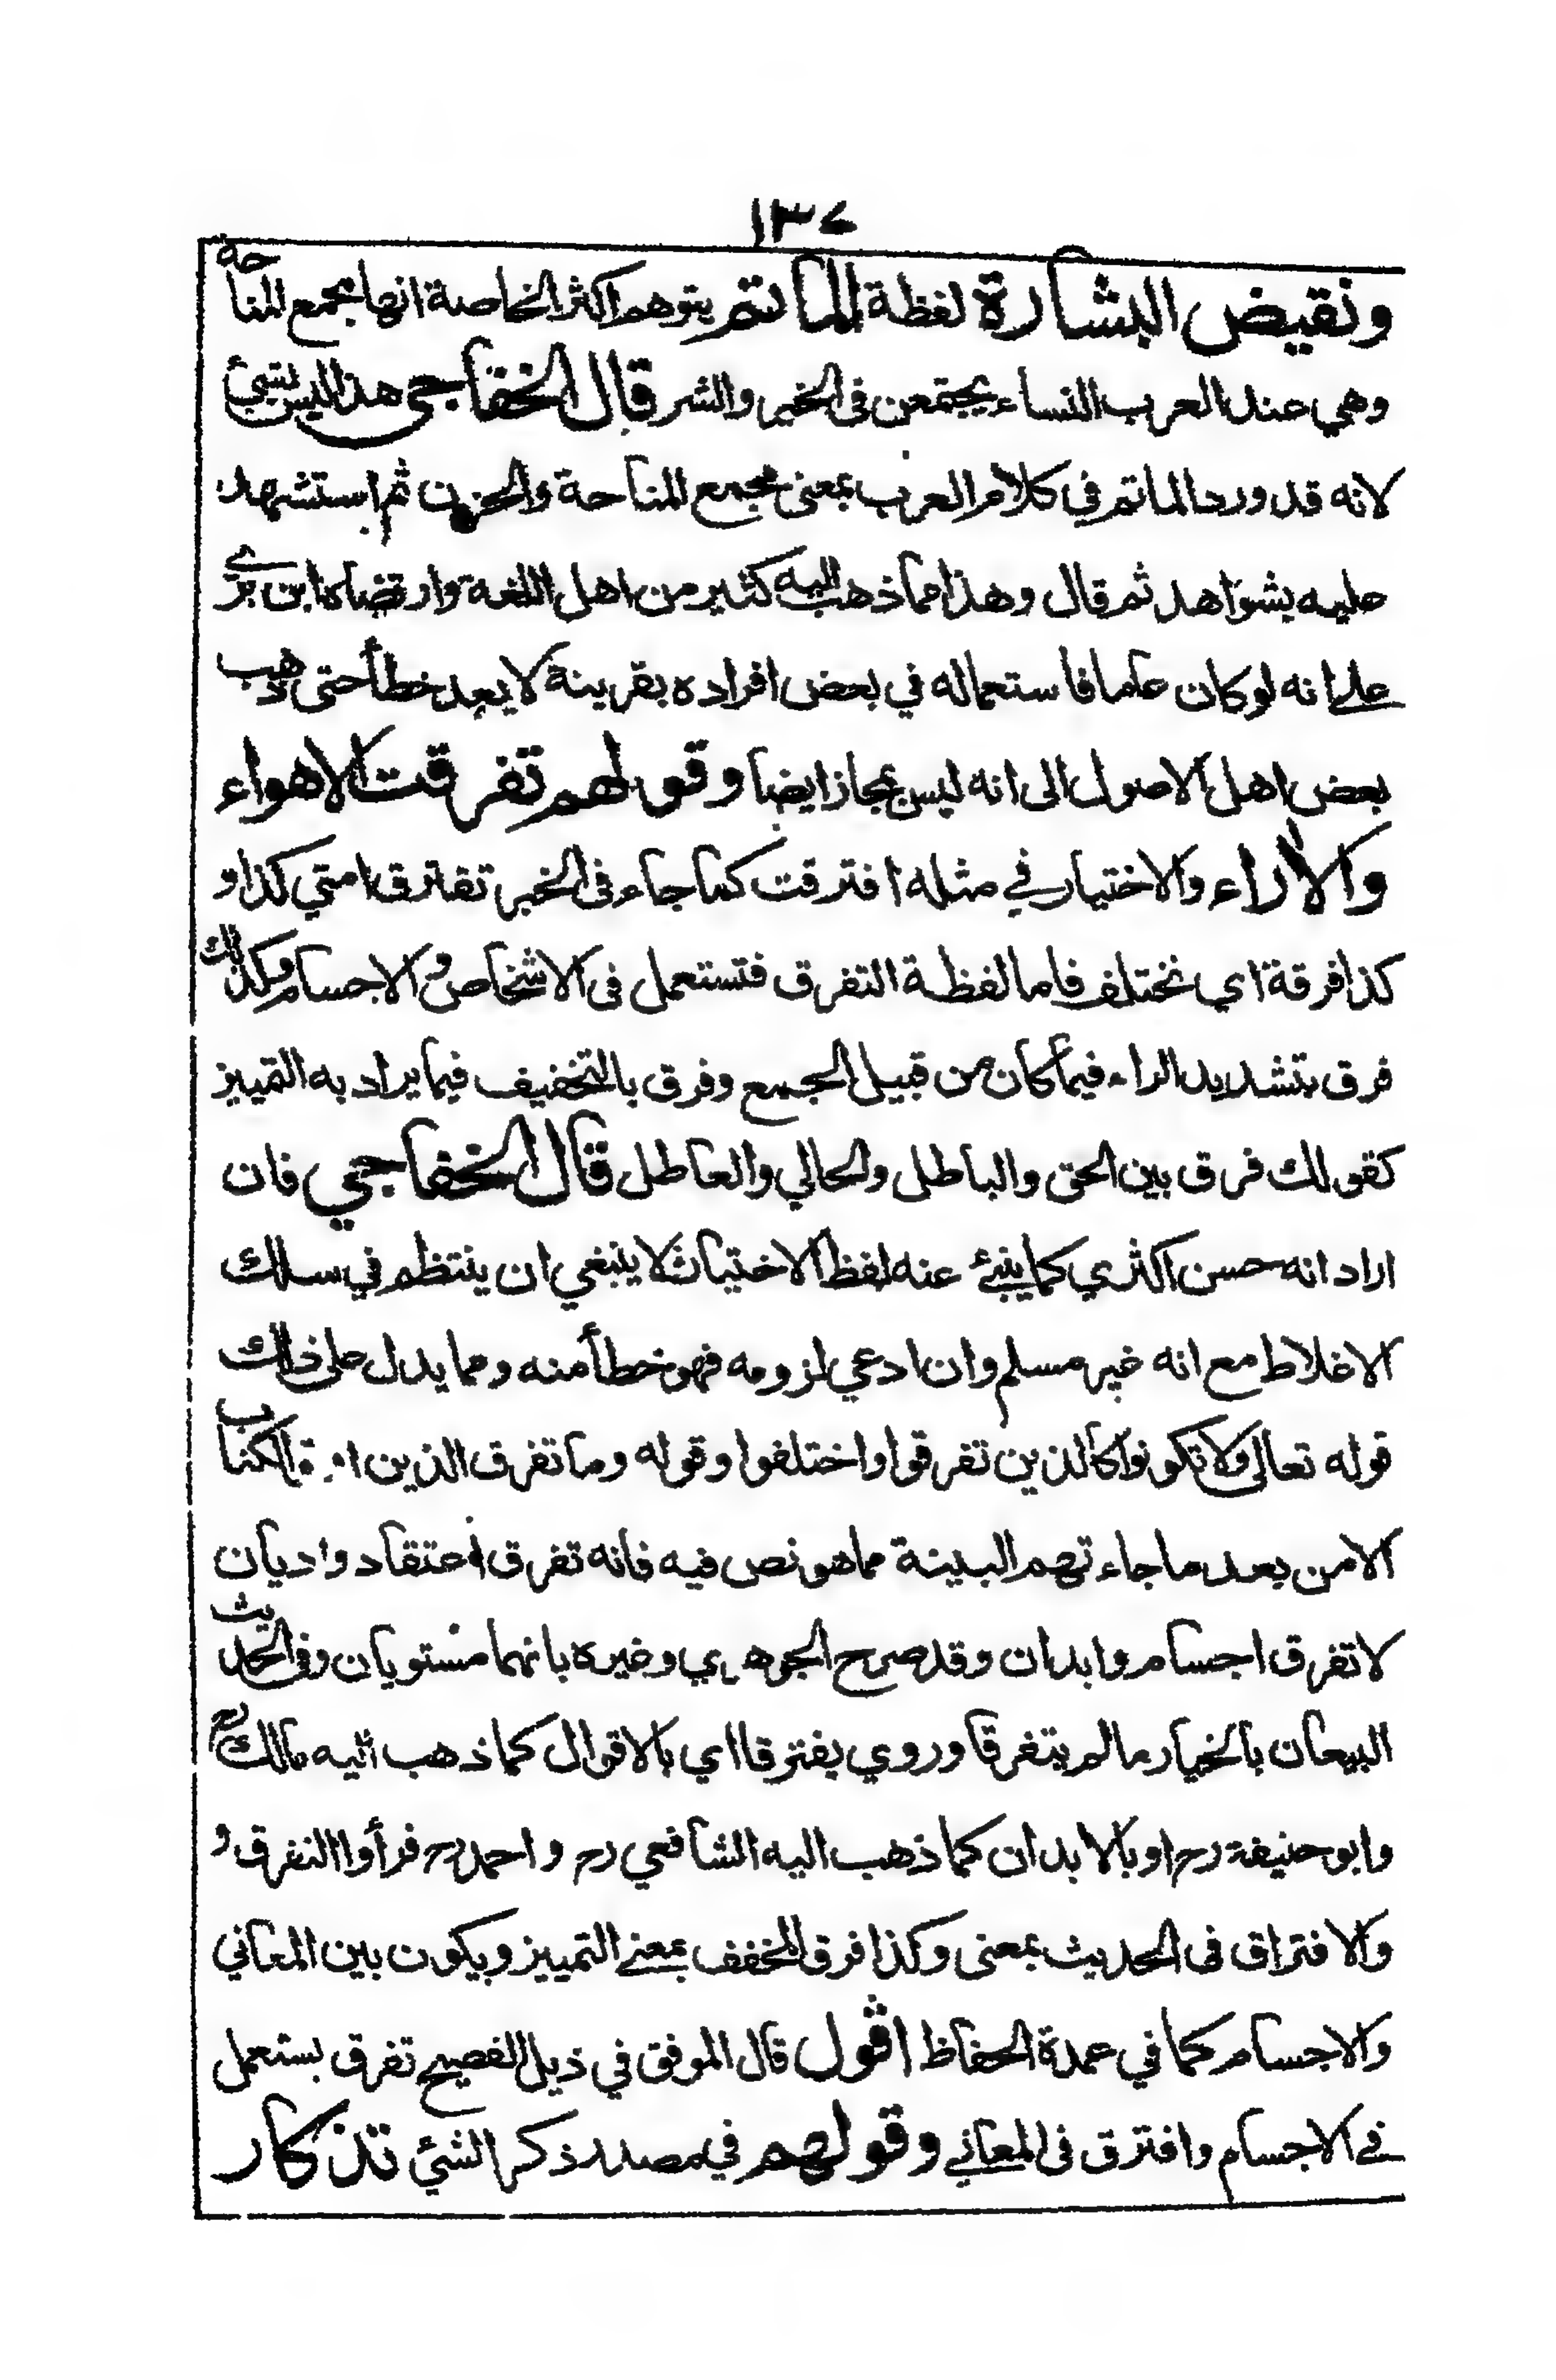 ١٣٤
ونقيض البشارة لفظة المأتم يتوهم اكثر الخاصة انها مجمع المناحة
وهي عند العرب النساء يجتمعن فى الخير والشر قال الخفاجي هذا ليس بشئ
لانه قد ورد الماتم في كلام العرب بمعنى مجمع المناحة والحزن ثم استشهد
عليه بشواهد ثم قال وهذا مما ذهب اليه كثير من اهل اللغة وارتضاه ابن بري
على انه لو كان عاما فاستعماله في بعض افراده بقرينة لا يعد خطأ حتى ذهب
بعض اهل الاصول الى انه ليس بمجاز ايضا وقولهم تفرقت الاهواء
والأراء والاختيار في مثله افترقت كما جاء فى الخبر تفترق امتي كذا و
كذا فرقة اي تختلف فاما لفظة التفرق فتستعمل فى الاشخاص والاجسام وكذلك
فرق بتشديد الراء فيما كان من قبيل الجمع وفرق بالتخفيف فيما يراد به التمييز
كقولك فرق بين الحق والباطل والحالي والعاطل قال الخفاجي فان
اراد انه حسن اكثري كما ينبئ عنه لفظ الاختيار لا ينبغي ان ينتظم في سلك
الاغلاط مع انه غير مسلم وان ادعي لزومه فهو خطأ منه ومما يدل على ذلك
قوله تعالى ولا تكونوا كالذين تفرقوا واختلفوا وقوله وما تفرق الذين الكتاب
الامن بعد ما جاءتهم البينة مما هو نص فيه فانه تفرق اعتقاد واديان
لا تفرق اجسام وابدان وقد صرح الجوهري وغيره بانهما مستويان وفى الحديث
البيعان بالخيار ما لم يتفرقا وروي يفترقا اي بالاقوال كما ذهب اليه مالك رح
وابو حنيفة رح او بالابدان كما ذهب اليه الشافعي رح واحمد رح فرأوا التفرق و
والافتراق فى الحديث بمعنى وكذا فرق المخفف بمعنے التمييز ويكون بين المعاني
والاجسام كما في عمدة الحفاظ اقول قال الموفق في ذيل الفصيح تفرق يستعمل
فے الاجسام وافترق فى المعاني وقولهم في مصدر ذكر الشئي تذكار